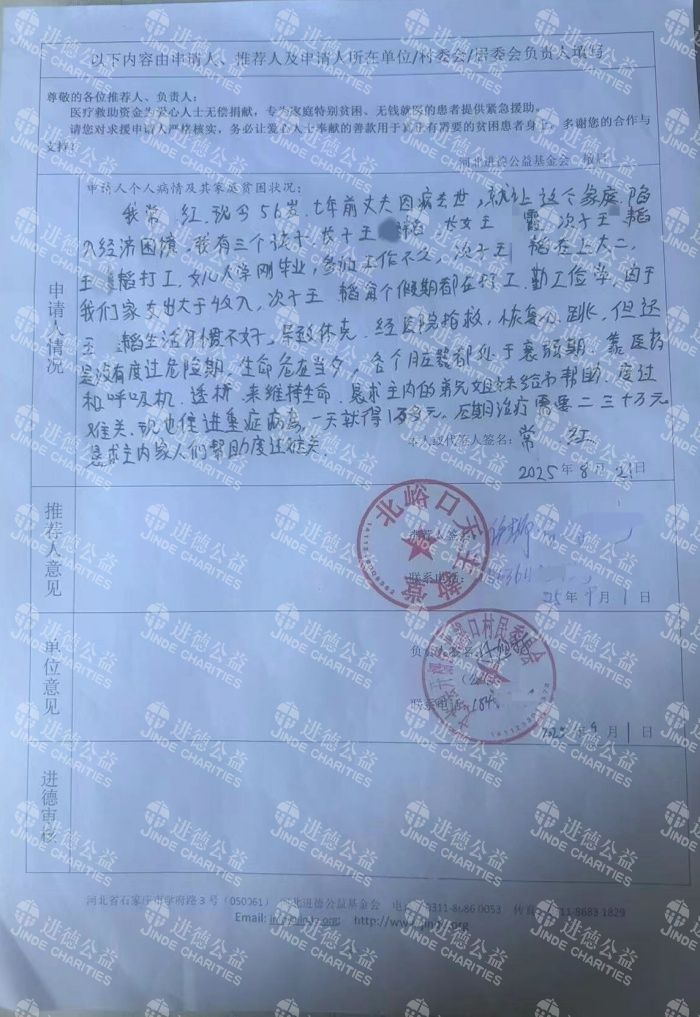 以下内容由申请人、推荐人及申请人所在单位/村委会/居委会负责人填写
尊敬的各位推荐人、负责人:
医疗救助资金为爱心人士无偿捐献,专为家庭特别贫困、无钱就医的患者提供紧急援助。
请您对求援申请人严格核实,务必让爱心人士奉献的善款用于真正有需要的贫困患者身上。多谢您的合作与
支持!
河北进德公益基金会 敬启
申请人情况
申请人个人病情及其家庭贫困状况:
我常 红,现今56岁.七年前丈夫因病去世,就让这个家庭.陷
入经济困境,我有三个孩子.长子王 韬 长女王 霞,次子王 韬
王 韬打工,女儿大学刚毕业,参加工作不久,次子王 韬在上大二,
我们家支出大于收入,次子王 韬每个假期都在打工.勤工俭学,由于
王 韬生活习惯不好,导致休克.经医院抢救,恢复心跳,但还
是没有度过危险期,生命危在旦夕,各个脏器都处于衰弱期.靠医药
和呼吸机.透析.来维持生命.恳求主内的弟兄姐妹给予帮助.度过
难关,现也住进重症病房,一天就得1万多元.后期治疗需要二三十万元
恳求主内家人们帮助度过难关.
本人或代荐人签名: 常 红
2025年8月21日
推荐人意见
北峪口天主教堂
推荐人签名:
联系电话:
25年9月1日
单位意见
口村民委员会
负责人签名:
联系电话: 184
2025年9月1日
进德审核
河北省石家庄市学府路3号(050061) 河北进德公益基金会 电话:0311-8686 0053 传真:0311-8683 1829
Email: info@jinde.org http://www.jinde.org
进德公益
JINDE CHARITIES